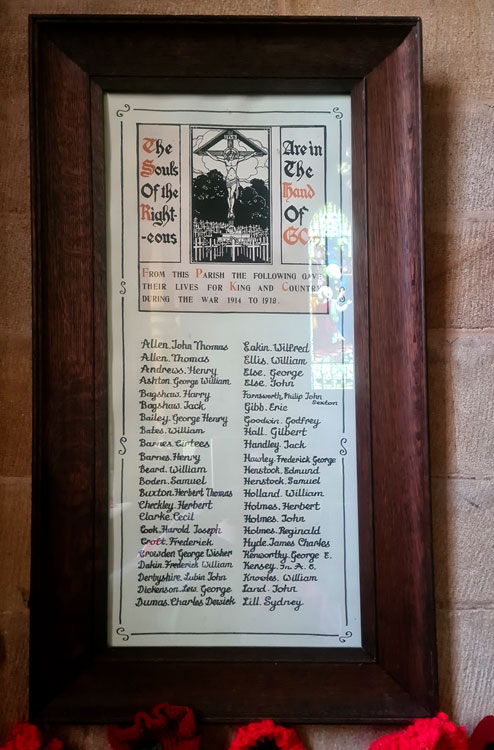 The
Souls
Of the
Right-
-eous
Are in
The
Hand
Of
GOD
FROM THIS PARISH THE FOLLOWING GAVE
THEIR LIVES FOR KING AND COUNTRY
DURING THE WAR 1914 TO 1918.
Allen. John Thomas
Allen. Thomas
Andrews. Henry
Ashton. George William
Bagshaw. Harry
Bagshaw. Jack
Bailey. George Henry
Bates. William
Barnes. Cirtees
Barnes. Henry
Beard. William
Boden. Samuel
Buxton. Herbert Thomas
Checkley. Herbert
Clarke. Cecil
Cook. Harold Joseph
Croft. Frederick
Crowden. George Wisher
Dakin. Frederick William
Derbyshire. Lubin John
Dickenson. Lew. George
Dumas. Charles Dewick
Eakin. Wilfred
Ellis. William
Else. George
Else. John
Farnsworth. Philip John
Sexton
Gibb. Eric
Goodwin. Godfrey
Hall. Gilbert
Handley. Jack
Hawley. Frederick George
Henstock. Edmund
Henstock. Samuel
Holland. William
Holmes. Herbert
Holmes. John
Holmes. Reginald
Hyde. James Charles
Kenworthy. George E.
Kersey.
Knowles. William
Land. John
Lill. Sydney